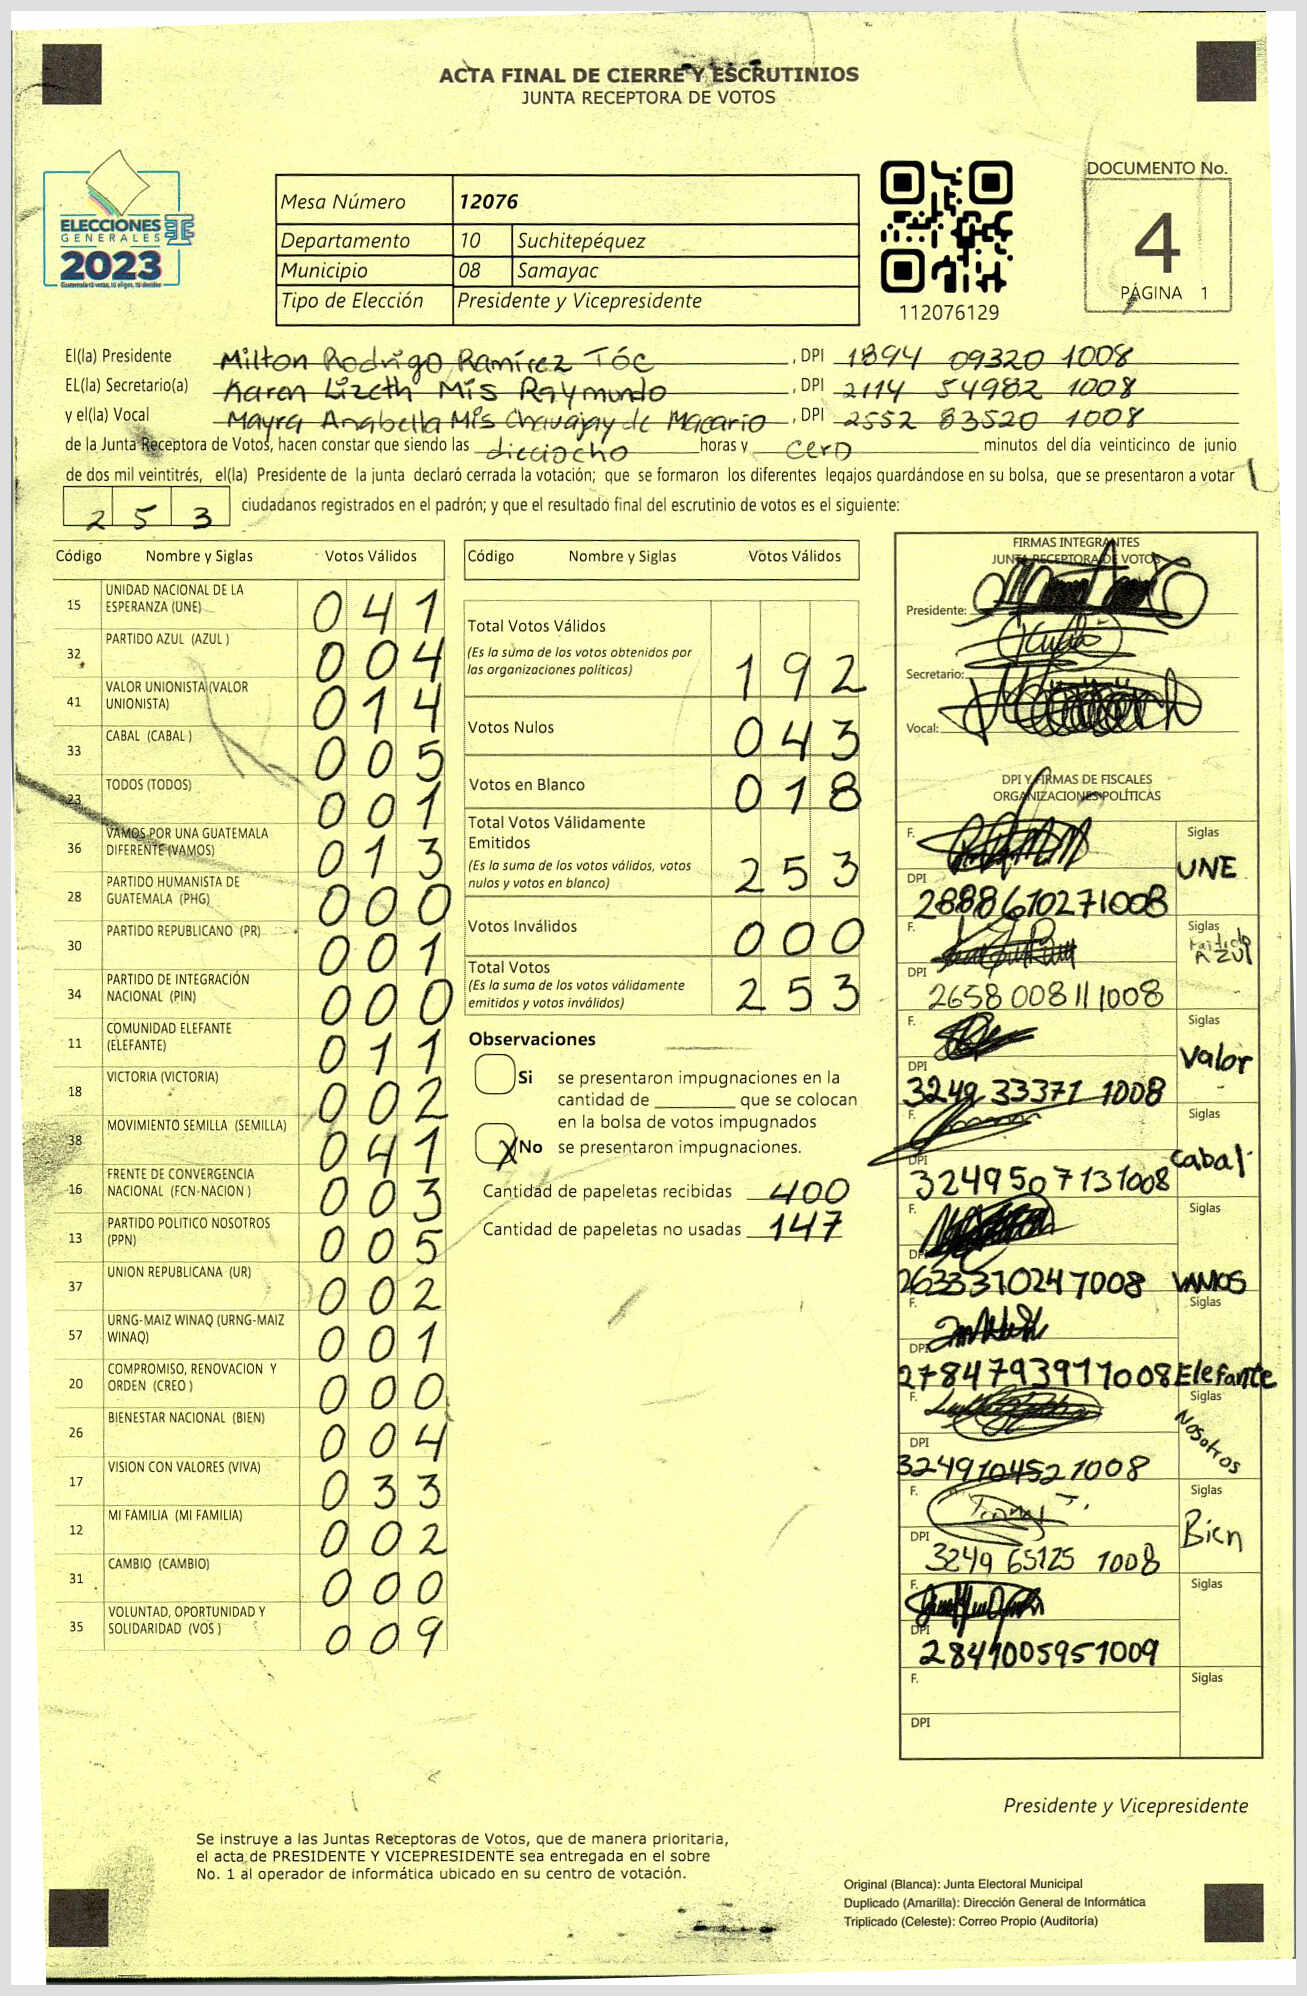 ACTA FINAL DE CIERRE Y ESCRUTINIOS
JUNTA RECEPTORA DE VOTOS
ELECCIONES
GENERALES
2023
Mesa Número 12076
Departamento 10 Suchitepéquez
Municipio 08 Samayac
Tipo de Elección Presidente y Vicepresidente
112076129
DOCUMENTO No.
4
PÁGINA 1
El(la) Presidente Milton Rodrigo Ramírez Tóc, DPI 1894 09320 1008
EL(la) Secretario(a) Karen Lizeth Mis Raymundo, DPI 2114 54982 1008
y el(la) Vocal Mayra Anabella Mis Chavajay de Macario, DPI 2552 83520 1008
de la Junta Receptora de Votos, hacen constar que siendo las dieciocho horas y cero minutos del día veinticinco de junio
de dos mil veintitrés, el(la) Presidente de la junta declaró cerrada la votación; que se formaron los diferentes legajos guardándose en su bolsa, que se presentaron a votar
253 ciudadanos registrados en el padrón; y que el resultado final del escrutinio de votos es el siguiente:
Código Nombre y Siglas Votos Válidos
15 UNIDAD NACIONAL DE LA
ESPERANZA (UNE) 041
32 PARTIDO AZUL (AZUL ) 004
41 VALOR UNIONISTA (VALOR
UNIONISTA) 014
33 CABAL (CABAL ) 005
23 TODOS (TODOS) 001
36 VAMOS POR UNA GUATEMALA
DIFERENTE (VAMOS) 013
28 PARTIDO HUMANISTA DE
GUATEMALA (PHG) 000
30 PARTIDO REPUBLICANO (PR) 001
34 PARTIDO DE INTEGRACIÓN
NACIONAL (PIN) 000
11 COMUNIDAD ELEFANTE
(ELEFANTE) 011
18 VICTORIA (VICTORIA) 002
38 MOVIMIENTO SEMILLA (SEMILLA) 041
16 FRENTE DE CONVERGENCIA
NACIONAL (FCN-NACION ) 003
13 PARTIDO POLITICO NOSOTROS
(PPN) 005
37 UNION REPUBLICANA (UR) 002
57 URNG-MAIZ WINAQ (URNG-MAIZ
WINAQ) 001
20 COMPROMISO, RENOVACION Y
ORDEN (CREO ) 000
26 BIENESTAR NACIONAL (BIEN) 004
17 VISION CON VALORES (VIVA) 033
12 MI FAMILIA (MI FAMILIA) 002
31 CAMBIO (CAMBIO) 000
35 VOLUNTAD, OPORTUNIDAD Y
SOLIDARIDAD (VOS ) 009
Código Nombre y Siglas Votos Válidos
Total Votos Válidos
(Es la suma de los votos obtenidos por
las organizaciones políticas) 192
Votos Nulos 043
Votos en Blanco 018
Total Votos Válidamente
Emitidos
(Es la suma de los votos válidos, votos
nulos y votos en blanco) 253
Votos Inválidos 000
Total Votos
(Es la suma de los votos válidamente
emitidos y votos inválidos) 253
Observaciones
Si se presentaron impugnaciones en la
cantidad de ________ que se colocan
en la bolsa de votos impugnados
X No se presentaron impugnaciones.
Cantidad de papeletas recibidas 400
Cantidad de papeletas no usadas 147
FIRMAS INTEGRANTES
JUNTA RECEPTORA DE VOTOS
Presidente:
Secretario:
Vocal:
DPI Y FIRMAS DE FISCALES
ORGANIZACIONES POLÍTICAS
F. Siglas
UNE
DPI
2888610271008
F. Siglas
Partido
AZUL
DPI
2658 00811 1008
F. Siglas
Valor
DPI
3249 33371 1008
F. Siglas
Cabal
DPI
3249507131008
F. Siglas
DPI
2633310247008 VAMOS
F. Siglas
DPI
2784793911008 Elefante
F. Siglas
Nosotros
DPI
3249104521008
F. Siglas
Bien
DPI
3249 65125 1008
F. Siglas
DPI
2841005951009
F. Siglas
DPI
Presidente y Vicepresidente
Se instruye a las Juntas Receptoras de Votos, que de manera prioritaria,
el acta de PRESIDENTE Y VICEPRESIDENTE sea entregada en el sobre
No. 1 al operador de informática ubicado en su centro de votación.
Original (Blanca): Junta Electoral Municipal
Duplicado (Amarilla): Dirección General de Informática
Triplicado (Celeste): Correo Propio (Auditoría)